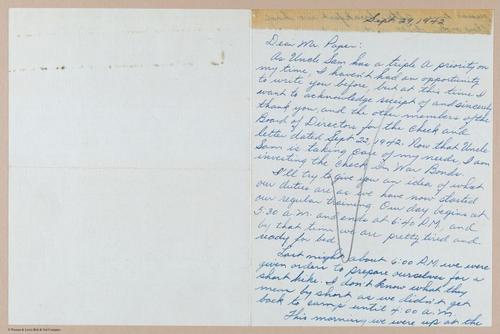 Sept 29, 1942
Dear Mr. Paper:
As Uncle Sam has a triple A priority on
my time, I haven't had an opportunity
to write you before, but at this time I
want to acknowledge receipt of and sincerely
thank you, and the other members of the
Board of Directors for the check and
letter dated Sept 22, 1942. Now that Uncle
Sam is taking care of my needs, I am
investing the check in War Bonds.
I'll try to give you an idea of what
our duties are as we have now started
our regular training. Our day begins at
5:30 A.M. and ends at 6:40 P.M. and
by that time we are pretty tired and
ready for bed.
Last night about 6:00 P.M. we were
given orders to prepare ourselves for a
short hike. I don't know what they
mean by short as we didn't get
back to camp until 4:00 A.M.
This morning we were up at the